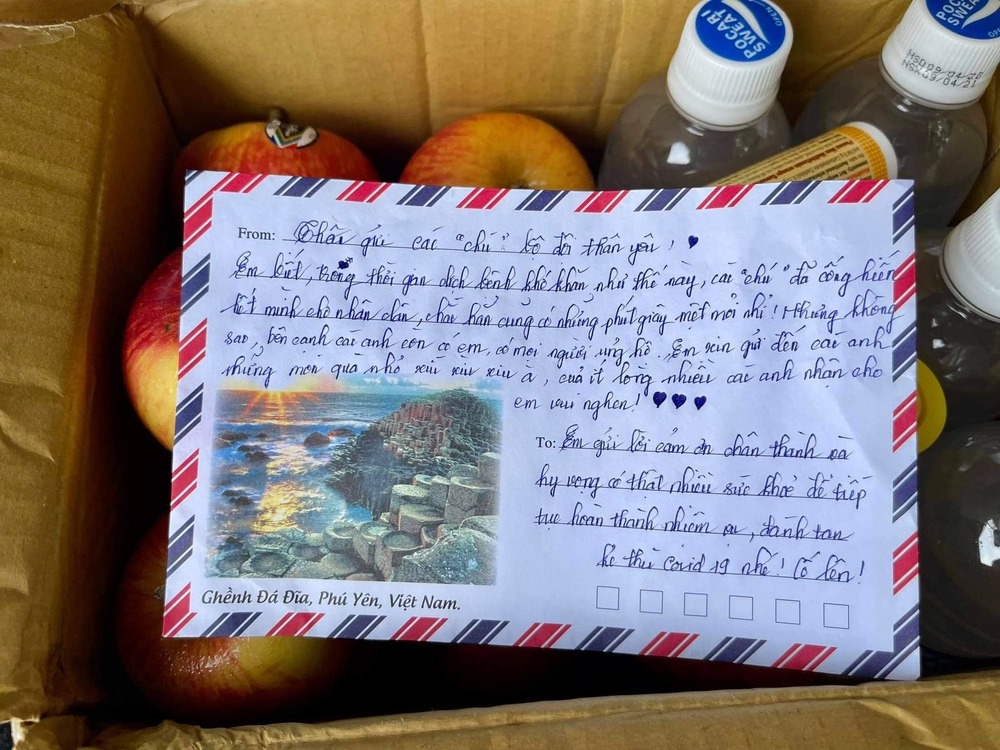 POCARI SWEAT
OPEN
POCARI SWEAT
HSD09/04/2
NSX09/04/21
From: Thân gửi các "chú" bộ đội thân yêu!
Em biết, trong thời gian dịch bệnh khó khăn như thế này, các "chú" đã cống hiến
hết mình cho nhân dân, chắc hẳn cũng có những phút giây mệt mỏi nhỉ! Nhưng không
sao, bên cạnh các anh còn có em, có mọi người ủng hộ. Em xin gửi đến các anh
những món quà nhỏ xíu xíu xiu à, của ít lòng nhiều các anh nhận cho
em vui nghen!
To: Em gửi lời cảm ơn chân thành và
hy vọng có thật nhiều sức khoẻ để tiếp
tục hoàn thành nhiệm vụ, đánh tan
kẻ thù covid 19 nhé! Cố lên!
Ghềnh Đá Đĩa, Phú Yên, Việt Nam.